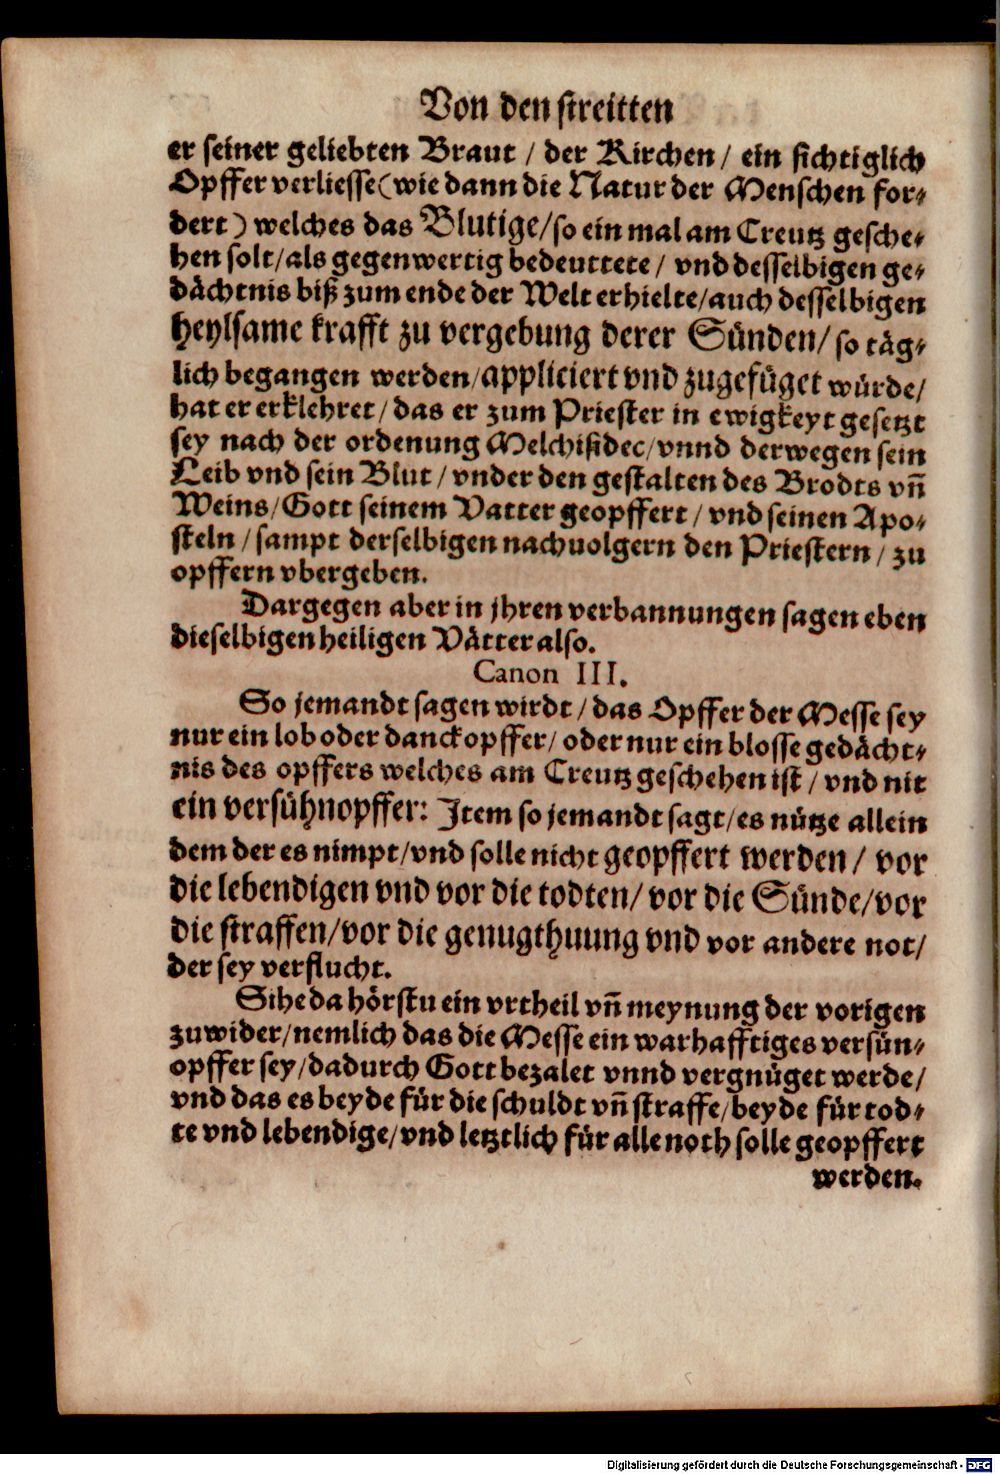 Von den streitten
er seiner geliebten Braut / der Kirchen / ein sichtiglich
Opffer verliesse (wie dann die Natur der Menschen for-
dert) welches das Blutige / so ein mal am Creutz gesche-
hen solt / als gegenwertig bedeuttete / vnd desselbigen ge-
dächtnis biß zum ende der Welt erhielte / auch desselbigen
heylsame krafft zu vergebung derer Sünden / so täg-
lich begangen werden / appliciert vnd zugefüget würde /
hat er erklehret / das er zum Priester in ewigkeyt gesetzt
sey nach der ordenung Melchisidec / vnnd derwegen sein
Leib vnd sein Blut / vnder den gestalten des Brodts vñ
Weins / Gott seinem Vatter geopffert / vnd seinen Apo-
steln / sampt derselbigen nachuolgern den Priestern / zu
opffern vbergeben.
Dargegen aber in jhren verbannungen sagen eben
dieselbigen heiligen Vätter also.
Canon III.
So jemandt sagen wirdt / das Opffer der Messe sey
nur ein lob oder danckopffer / oder nur ein blosse gedächt-
nis des opffers welches am Creutz geschehen ist / vnd nit
ein versühnopffer: Item so jemandt sagt / es nütze allein
dem der es nimpt / vnd solle nicht geopffert werden / vor
die lebendigen vnd vor die todten / vor die Sünde / vor
die straffen / vor die genugthuung vnd vor andere not /
der sey verflucht.
Sihe da hörstu ein vrtheil vñ meynung der vorigen
zuwider / nemlich das die Messe ein warhafftiges versün-
opffer sey / dadurch Gott bezalet vnnd vergnüget werde /
vnd das es beyde für die schuldt vñ straffe / beyde für tod-
te vnd lebendige / vnd letztlich für alle noth solle geopffert
werden.
Digitalisierung gefördert durch die Deutsche Forschungsgemeinschaft - DFG